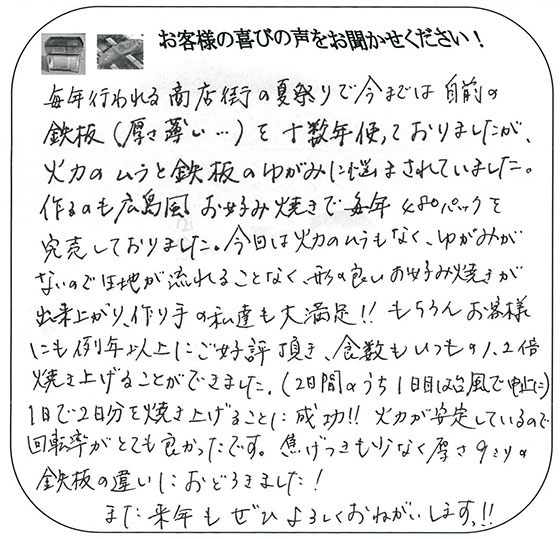 お客様の喜びの声をお聞かせください！
毎年行われる商店街の夏祭りで今までは自前の
鉄板（厚さ薄い…）を十数年使っておりましたが、
火力のムラと鉄板のゆがみに悩まされていました。
作るのも広島風お好み焼きで毎年480パックを
完売しておりました。今回は火力のムラもなく、ゆがみが
ないので生地が流れることなく、形の良いお好み焼きが
出来上がり、作り手の私達も大満足!! もちろんお客様
にも例年以上にご好評頂き、食数もいつもの1.2倍
焼き上げることができました。（2日間のうち1日目は台風で中止に）
1日で2日分を焼き上げることに成功!! 火力が安定しているので
回転率がとても良かったです。焦げつきも少なく厚さ9ミリの
鉄板の違いにおどろきました！
また来年もぜひよろしくおねがいします。!!